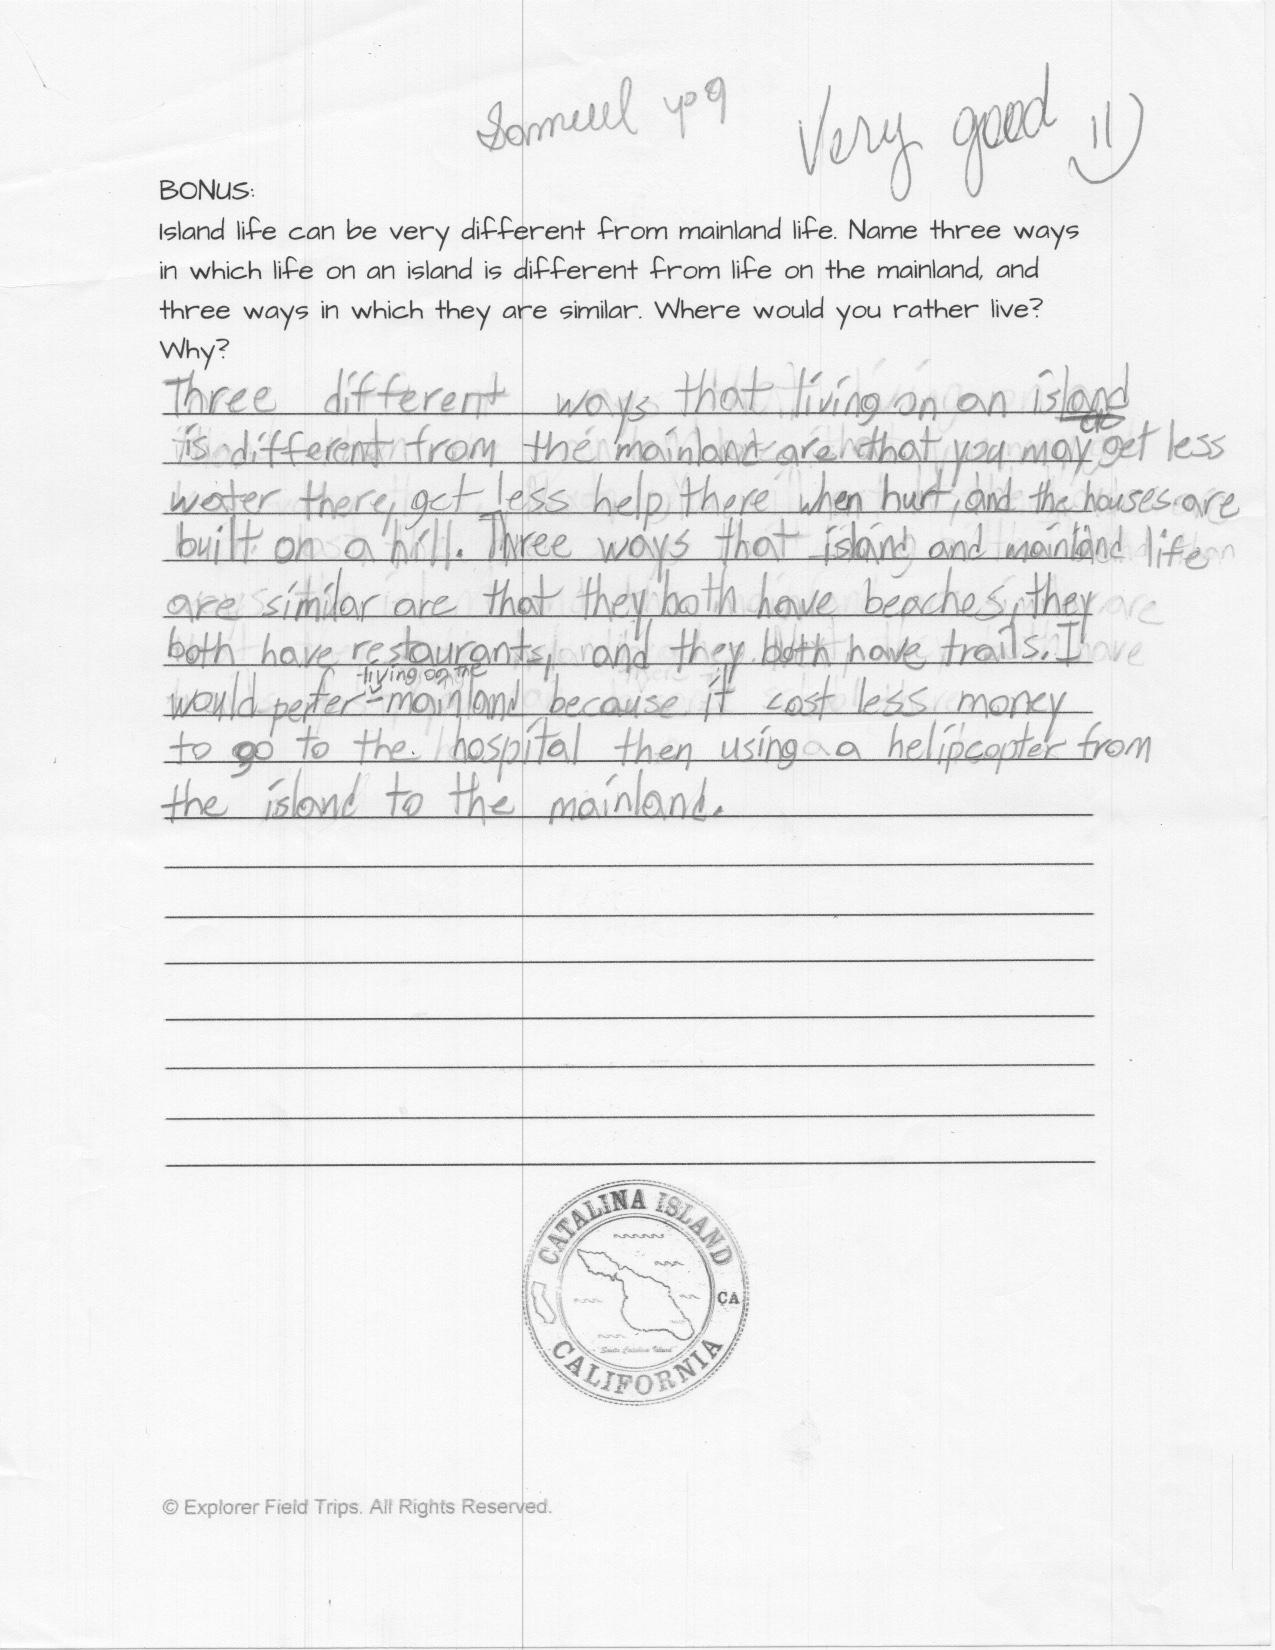 Samuel yo9 Very good
BONUS:
Island life can be very different from mainland life. Name three ways
in which life on an island is different from life on the mainland, and
three ways in which they are similar. Where would you rather live?
Why?
Three different ways that living on an island
is different from the mainland are that you may get less
water there, get less help there when hurt, and the houses are
built on a hill. Three ways that island and mainland life
are similar are that they both have beaches, they
both have restaurants, and they both have trails. I
living on the
would perfer mainland because it cost less money
to go to the hospital then using a helipcopter from
the island to the mainland.
CATALINA ISLAND
CA
CALIFORNIA
© Explorer Field Trips. All Rights Reserved.